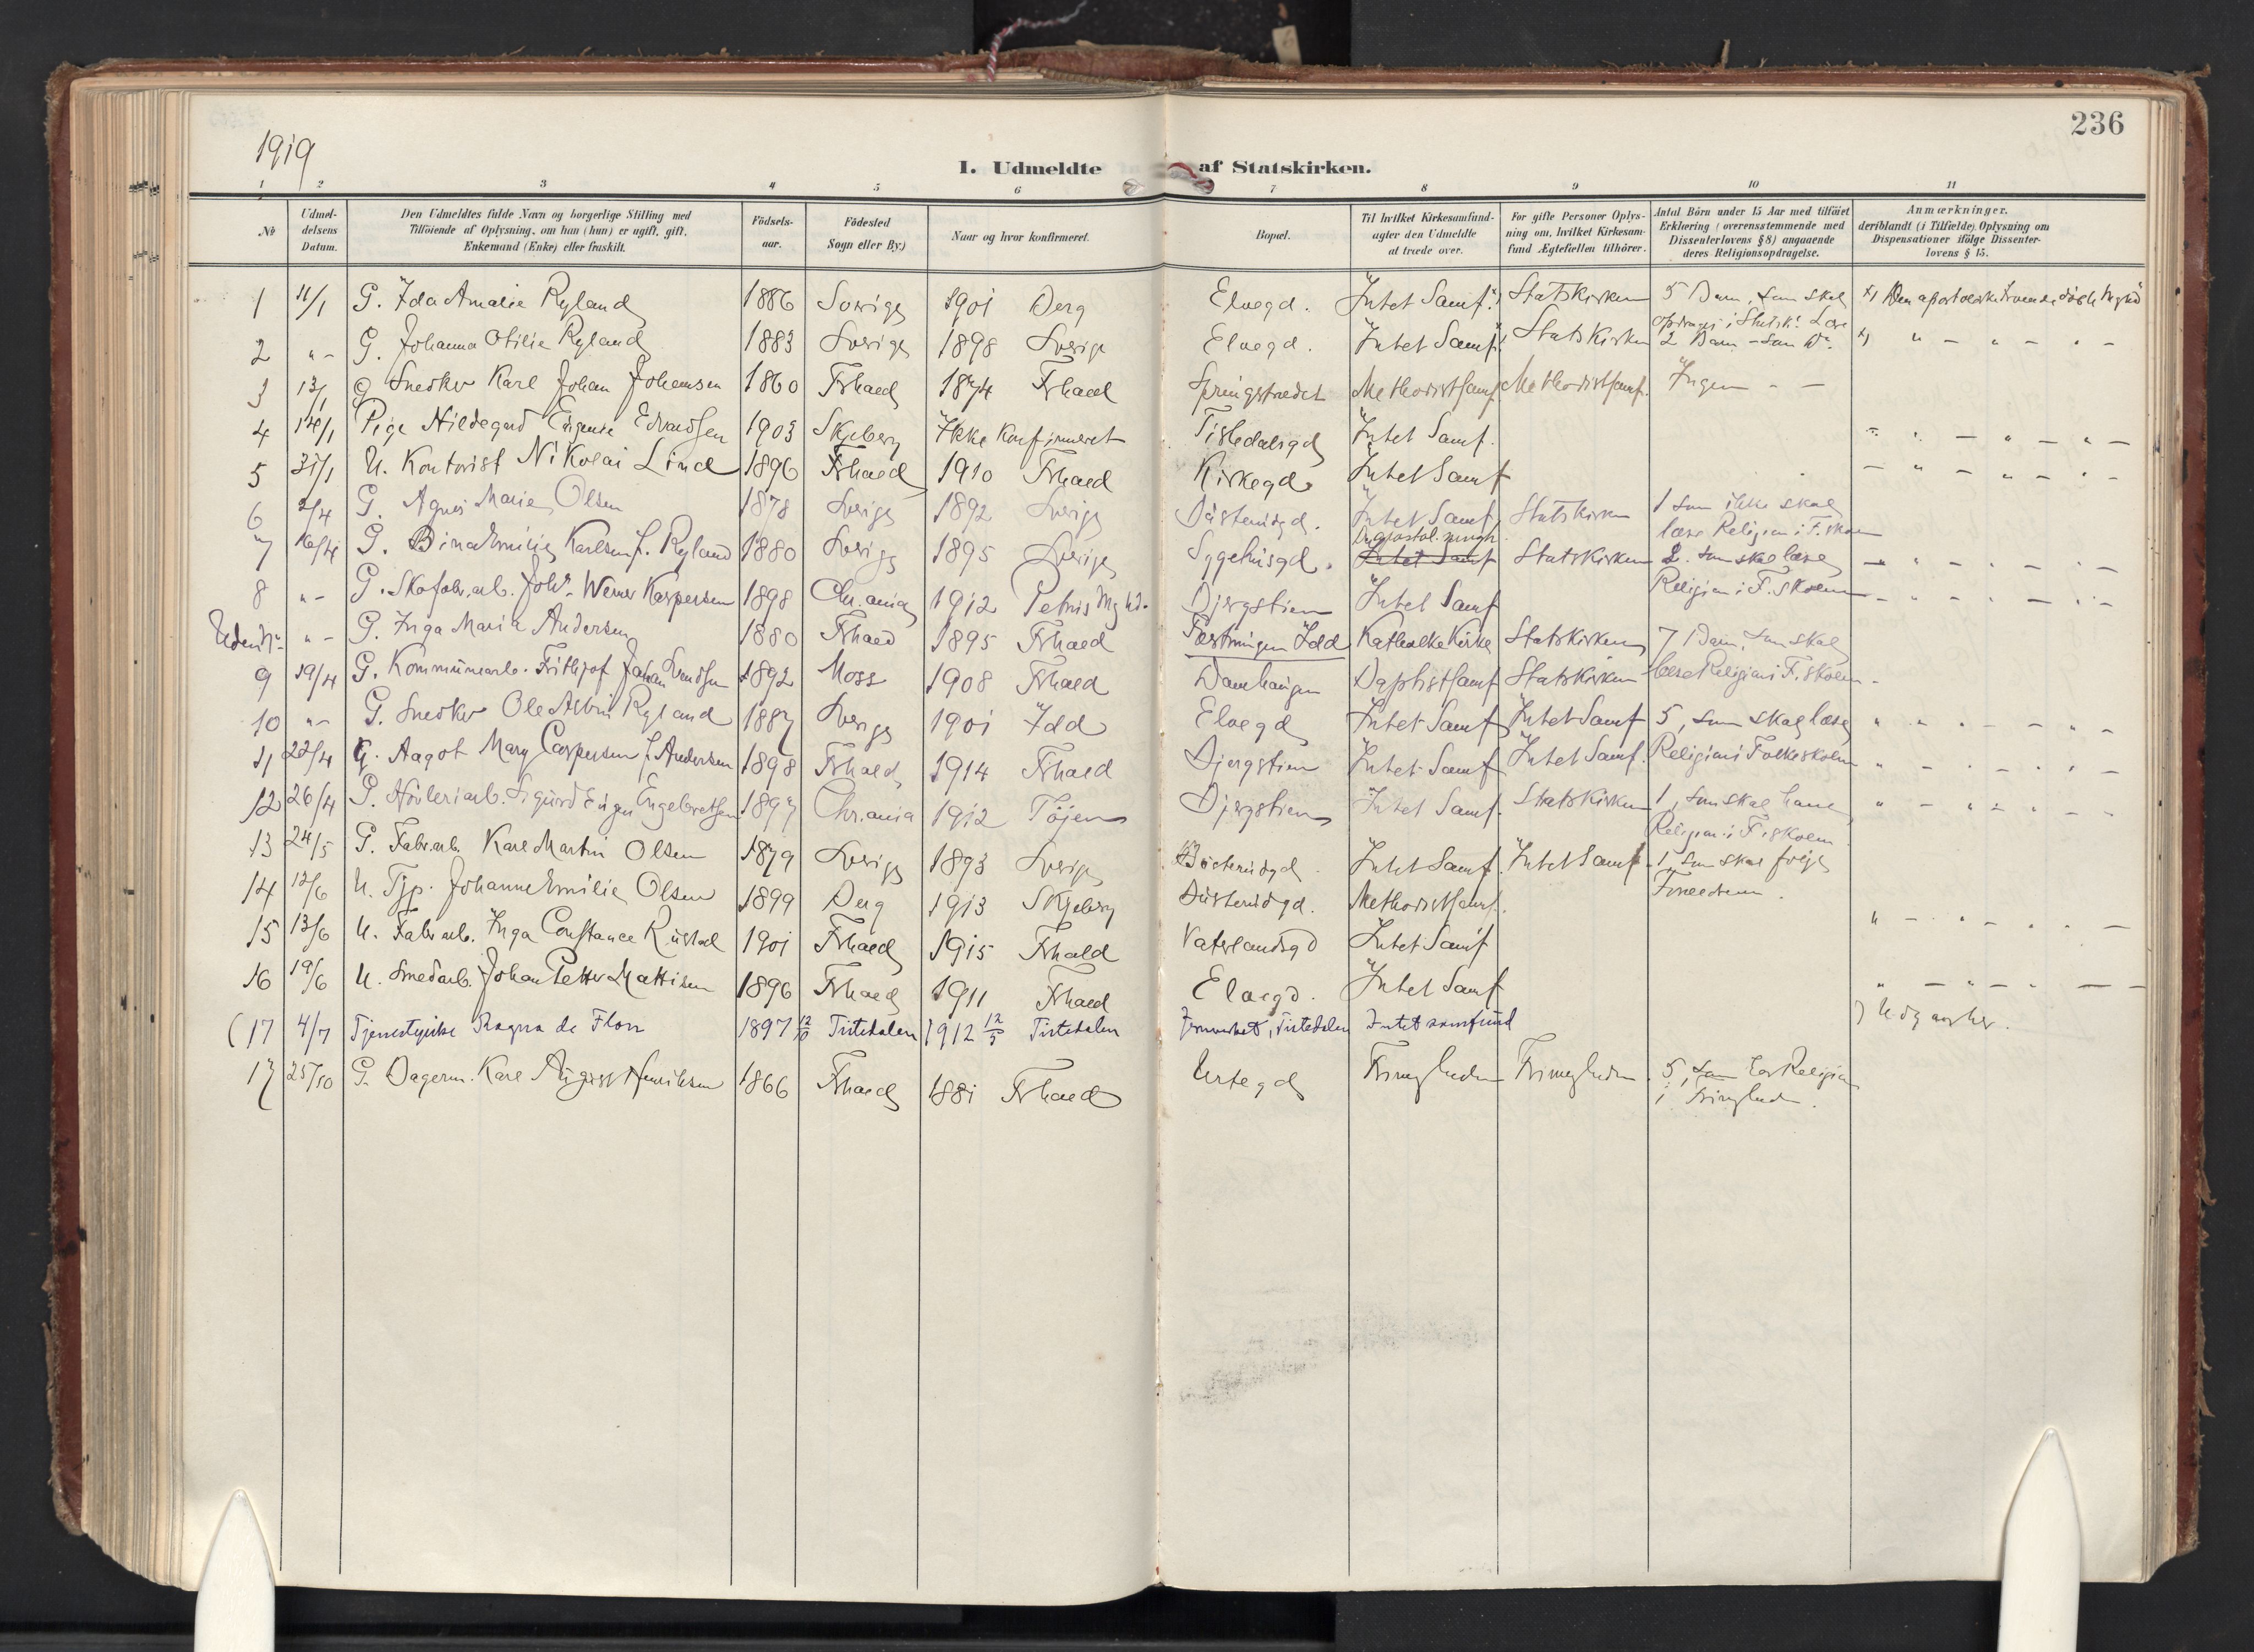 1919
236
I. Udmeldte af Statskirken.
1 2 3 4 5 6 7 8 9 10 11
№
Udmeldelsens Datum.
Den Udmeldtes fulde Navn og borgerlige Stilling med
Tilföiende af Oplysning, om han (hun) er ugift, gift,
Enkemand (Enke) eller fraskilt.
Födselsaar.
Födested
Sogn eller By.)
Naar og hvor konfirmeret.
Bopæl.
Til hvilket Kirkesamfund
agter den Udmeldte
at træde over.
For gifte Personer Oplysning om, hvilket Kirkesamfund Ægtefællen tilhörer.
Antal Börn under 15 Aar med tilföiet
Erklering (overensstemmende med
Dissenterlovens § 8) angaaende
deres Religionsopdragelse.
Anmærkninger,
deriblandt (i Tilfælde) Oplysning om
Dispensationer ifölge Dissenterlovens § 15.
1 11/1 G. Ida Amalie Ryland 1886 Sverige 1901 Berg Elvegd. Intet Samf. x) Statskirken 5 Barn, som skal x) Den apostoliske Troende
opdrages i Statsk. Lære
2 " - G. Johanna Otilie Ryland 1883 Sverige 1898 Sverige Elvegd. Intet Samf. x) Statskirken 2 Barn - som Do. x) " - " - " -
3 13/1 G Snedker Karl Johan Johansen 1860 Frhald 1874 Frhald Springstrædet Methodistsamf. Methodistsamf. Ingen - -
4 14/1 Pige Hildegard Eugenie Edvardsen 1903 Skjeberg Ikke Konfirmeret Tistedalsgd Intet Samf. - " - " - " -
5 31/1 U. Kontorist Nikolai Lind 1896 Frhald 1910 Frhald Kirkegd. Intet Samf - " - " - " -
6 2/4 G. Agnes Marie Olsen 1878 Sverige 1892 Sverige Busterudgd. Intet Samf. Statskirken 1 som ikke skal
læse Religion i F. skolen
7 16/4 G. Bina Emilie Karlsen f. Ryland 1880 Sverige 1895 Sverige Sygehusgd. Intet Samf Statskirken 2. som skal læse - " - " - " -
Religion i F. Skolen
8 " - G. Skofabr.arb. Joh. Werner Kaspersen 1898 Chr.ania 1912 Petrus Mghd. Bjergstien Intet Samf - " - " -
Udenb. " - G. Inga Maria Andersen 1880 Frhald 1895 Frhald Fæstningen Idd Katholske Kirke Statskirken 7 Barn, som skal
læse Religion i F. skolen -
9 19/4 G. Kommunearb. Frithjof Johan Svendsen 1892 Moss 1908 Frhald Damhaugen Baptistsamf Statskirken
10 " - G. Snedker Ole Albin Ryland 1887 Sverige 1901 Idd Elvegd Intet Samf Intet Samf 5, som skal læse " - " - " -
Religion i Folkeskolen
11 22/4 G. Aagot Mary Caspersen f. Andersen 1898 Frhald 1914 Frhald Bjergstien Intet Samf Intet Samf. " - " - " -
12 26/4 G. Höuleriarb. Sigurd Eugen Engebretsen 1897 Chr.ania 1912 Töjen Bjergstien Intet Samf. Statskirken 1, som skal have " - " - " -
Religion i F. skolen
13 24/5 G. Fabr.arb. Karl Martin Olsen 1879 Sverige 1893 Sverige Busterudgd. Intet Samf. Intet Samf. 1, som skal følge
Forældrene.
14 12/6 U. Tjp. Johanne Emilie Olsen 1899 Berg 1913 Skjeberg Busterudgd. Methodistsamf.
15 13/6 U. Fabr.arb. Inga Constance Rustad 1901 Frhald 1915 Frhald Vaterlandsgd Intet Samf " - " - " -
16 19/6 U. Smedarb. Johan Petter Mattisen 1896 Frhald 1911 Frhald Elvegd. Intet Samf " - " - " -
(17 4/7 Tjenestepike Ragna de Flon 1897 12/10 Tistedalen 1912 12/5 Tistedalen Jernverket, Tistedalen Intet samfund )
17 25/10 G. Bagerm. Karl August Henriksen 1866 Frhald 1881 Frhald Urtegd Frimenigheden Frimenigheden 5, som har Religion
i Frimenigheden.